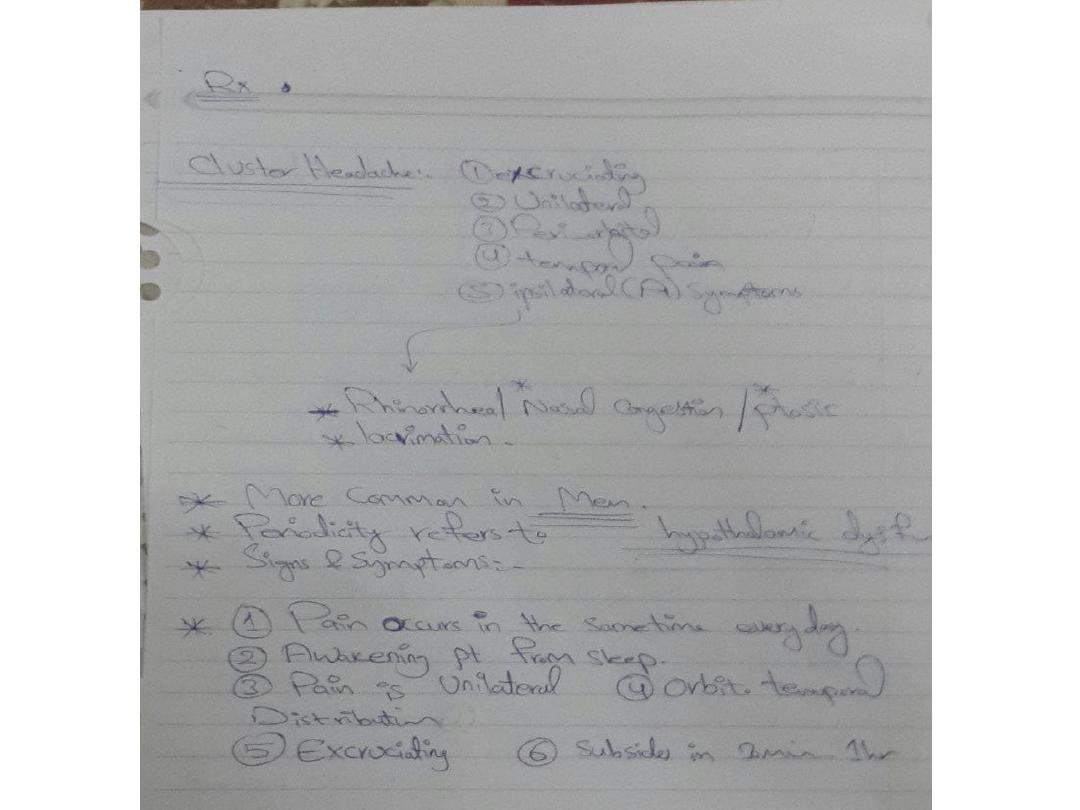 Rx .
Cluster Headache:- ① excruciating
② Unilateral
③ Peri orbital
④ temporal pain
⑤ ipsilateral (A) Symptoms
* Rhinorrhea / * Nasal Congestion / * ptosis
* lacrimation -
* More Common in Men.
* Periodicity refers to hypothalamic dysf
* Signs & Symptoms:-
* ① Pain occurs in the sametime everyday.
② Awakening pt from sleep.
③ Pain is Unilateral ④ Orbito temporal
Distribution
⑤ Excruciating ⑥ Subsides in 1hr